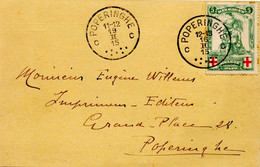 POPERINGHE
11-12
19
II
15
C C
POPERINGHE
12-
16
II
15
C C
5 5
Monsieur Eugène Willems
Imprimeur-Editeur
Grand-Place 28.
Poperinghe